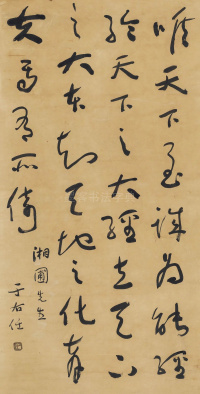 唯天下至誠為能經
綸天下之大經立天下
之大本知天地之化育
夫焉有所倚
湘圃先生
于右任